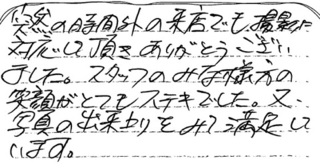 突然の時間外の来店でも、撮影に
対応して頂きありがとうござい
ました。スタッフのみな様方の
笑顔がとてもステキでした。又、
写真の出来上りをみて満足して
います。